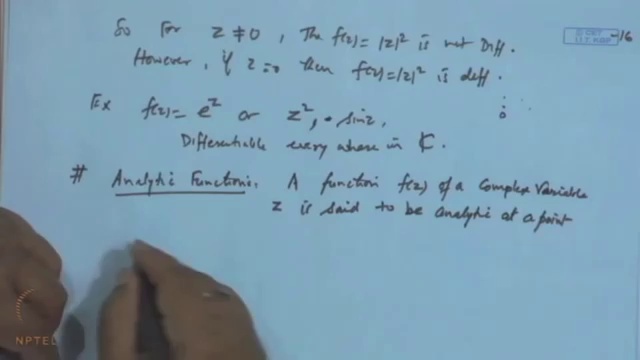 So For z ≠ 0, The f(z) = |z|² is not Diff.
However, if z = 0 then f(z) = |z|² is diff.
Ex f(z) = e^z or z², sin z,
Differentiable every where in ₵.
# Analytic Functions. A function f(z) of a Complex Variable
z is said to be analytic at a point
NPTEL